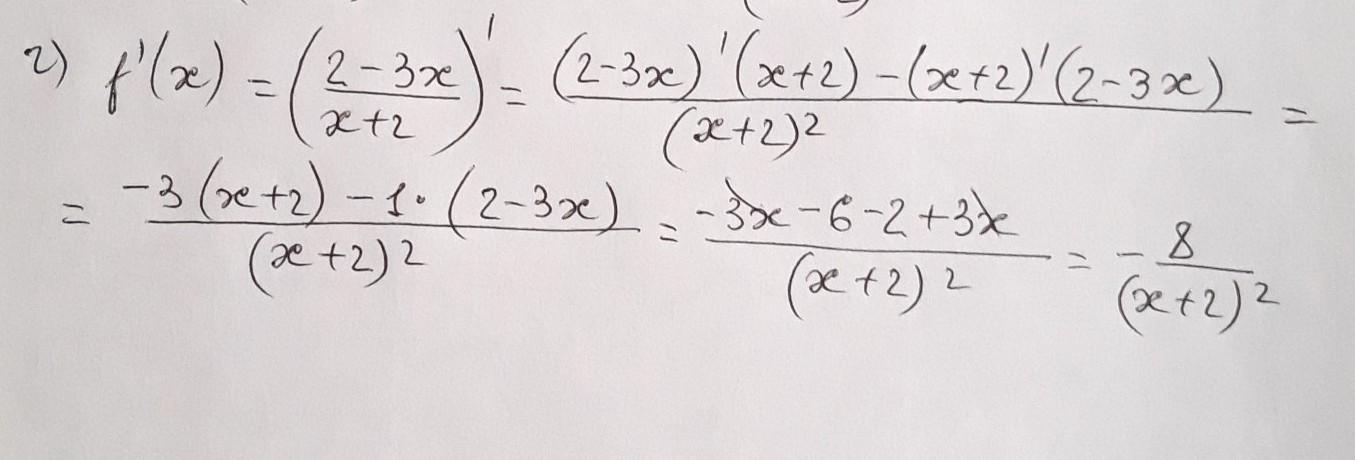 г) f'(x) = ((2-3x)/(x+2))' = ((2-3x)'(x+2) - (x+2)'(2-3x))/(x+2)² =
= (-3(x+2) - 1·(2-3x))/(x+2)² = (-3x-6-2+3x)/(x+2)² = -8/(x+2)²